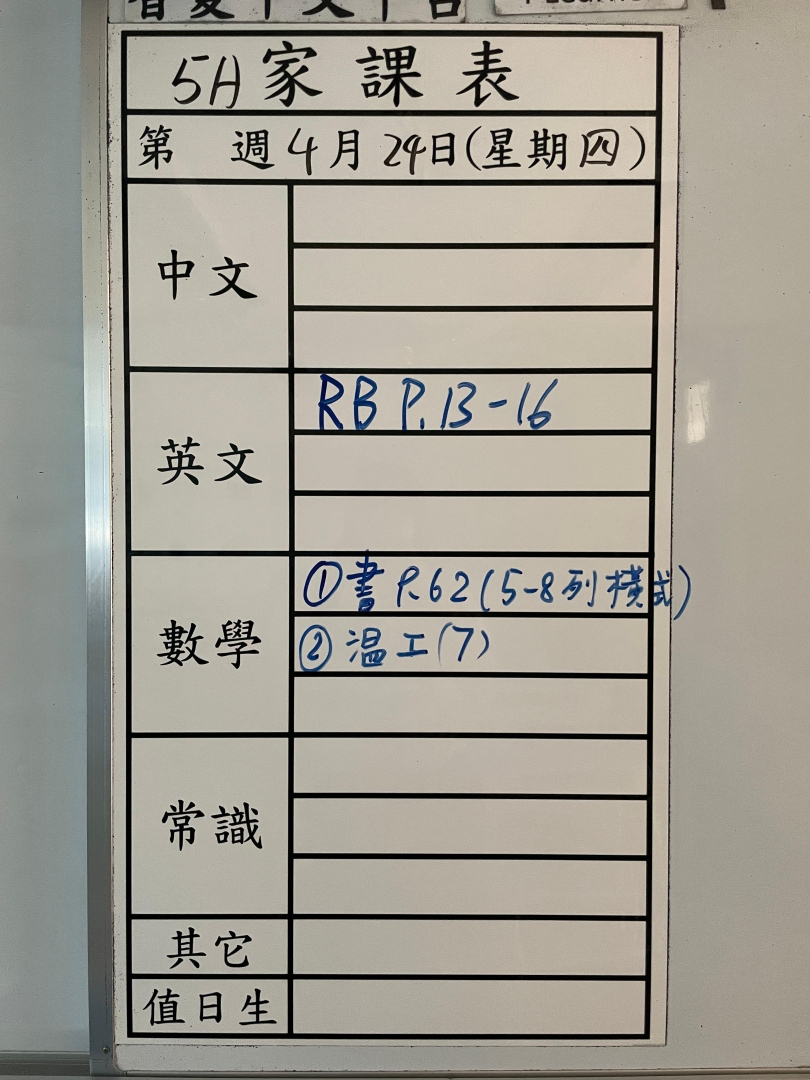 5A 家課表
第 週 4月 24日(星期四)
中文
英文
RB P.13-16
數學
①書 P.62 (5-8列橫式)
②温工(7)
常識
其它
值日生